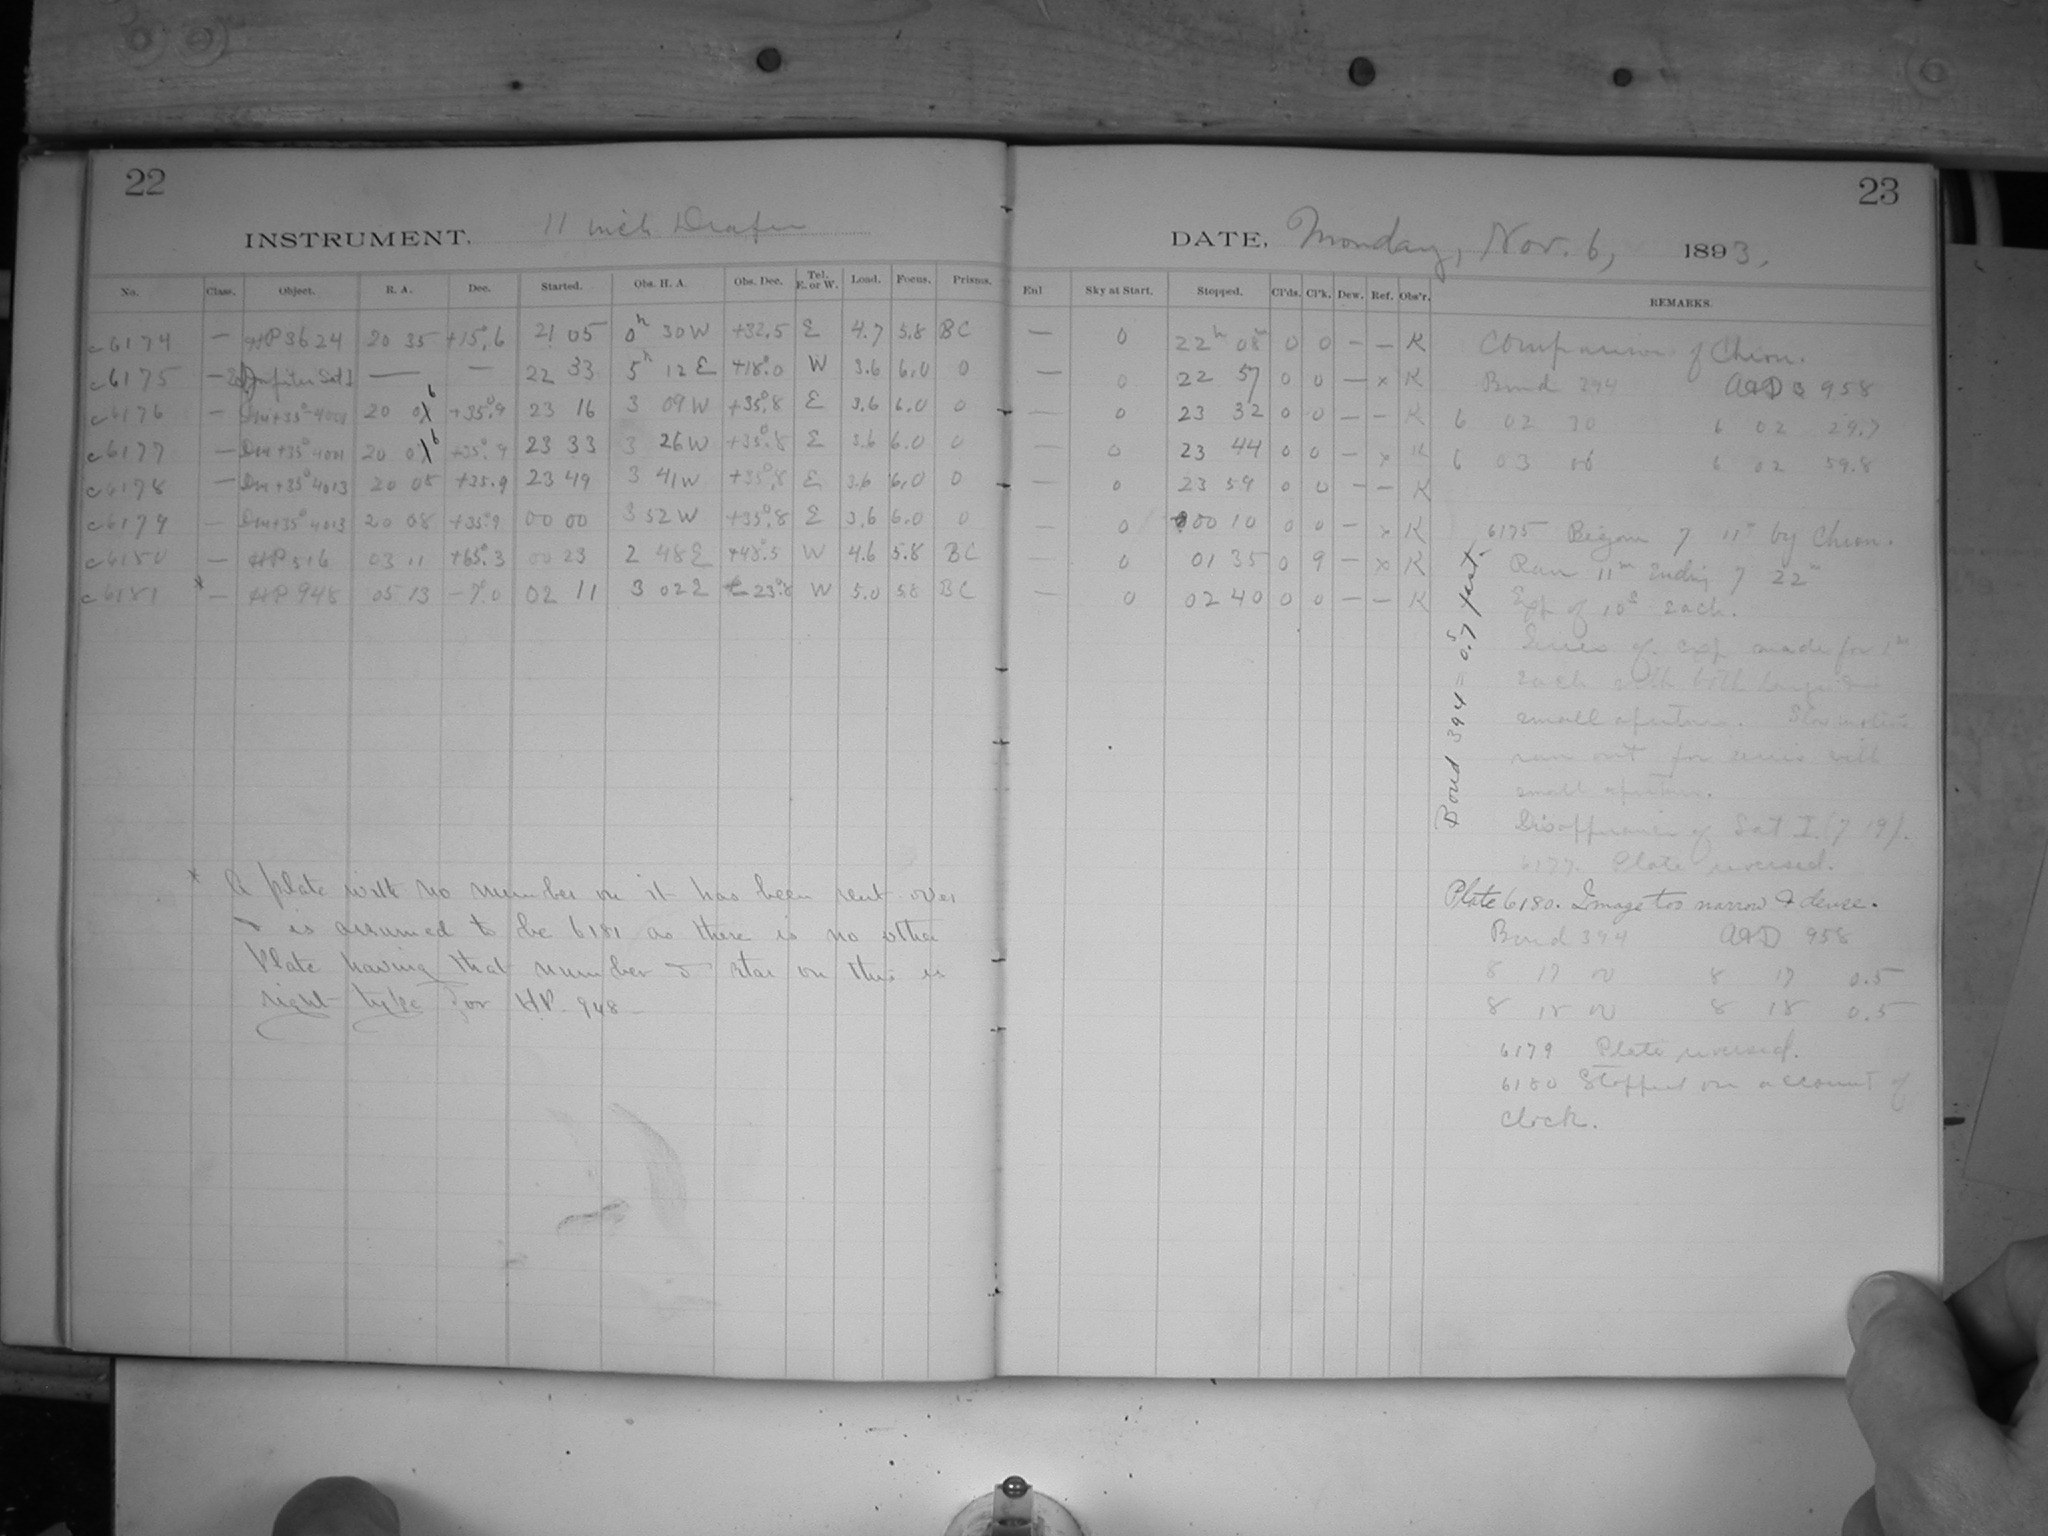 22
INSTRUMENT. 11 inch Draper
No. Class. Object. R. A. Dec. Started. Obs. H. A. Obs. Dec. Tel. E. or W. Load. Focus. Prisms.
c6174 — HP 3624 20 35 +15°.6 21 05 0h 30 W +32.5 E 4.7 5.8 BC
c6175 — Jupiter Sat I — — 22 33 5h 12 E +18°.0 W 3.6 6.0 0
c6176 — DM+35° 4001 20 06 +35°.9 23 16 3 09 W +35°.8 E 3.6 6.0 0
c6177 — DM+35° 4001 20 06 +35°.9 23 33 3 26 W +35°.8 E 3.6 6.0 0
c6178 — DM+35° 4013 20 08 +35.9 23 49 3 41 W +35°.8 E 3.6 6.0 0
c6179 — DM+35° 4013 20 08 +35°.9 00 00 3 52 W +35°.8 E 3.6 6.0 0
c6180 — HP 516 03 11 +65°.3 00 23 2 48 E +48°.5 W 4.6 5.8 BC
c6181 * — HP 948 05 13 -7°.0 02 11 3 02 E 23°.8 W 5.0 5.8 BC
* A plate with no number on it has been sent over
& is assumed to be 6181 as there is no other
plate having that number & star on this is
right type for HP. 948
23
DATE, Monday, Nov. 6, 1893.
Enl Sky at Start. Stopped. Cl'ds. Cl'k. Dew. Ref. Obs'r. REMARKS.
— 0 22h 08 0 0 — — K
— 0 22 57 0 0 — x K
— 0 23 32 0 0 — — K
— 0 23 44 0 0 — x K
— 0 23 59 0 0 — — K
— 0 00 10 0 0 — x K
— 0 01 35 0 9 — x K
— 0 02 40 0 0 — — K
Comparison of Chron.
Bond 394 958
6 02 30 6 02 29.7
6 03 00 6 02 59.8
6175 Began 7 11m by Chron.
Ran 11m ending 7 22m
Exp of 10s each.
Series of exp made for 1m
each with both large &
small aperture. Slow motion
ran out for series with
small aperture.
Disappearance of Sat I. (7 19).
6177. Plate reversed.
Plate 6180. Image too narrow & dense.
Bond 394 958
8 17 00 8 17 0.5
8 18 00 8 18 0.5
6179 Plate reversed.
6180 Stopped on account of
clock.
Bond 394 = 0s.7 fast.